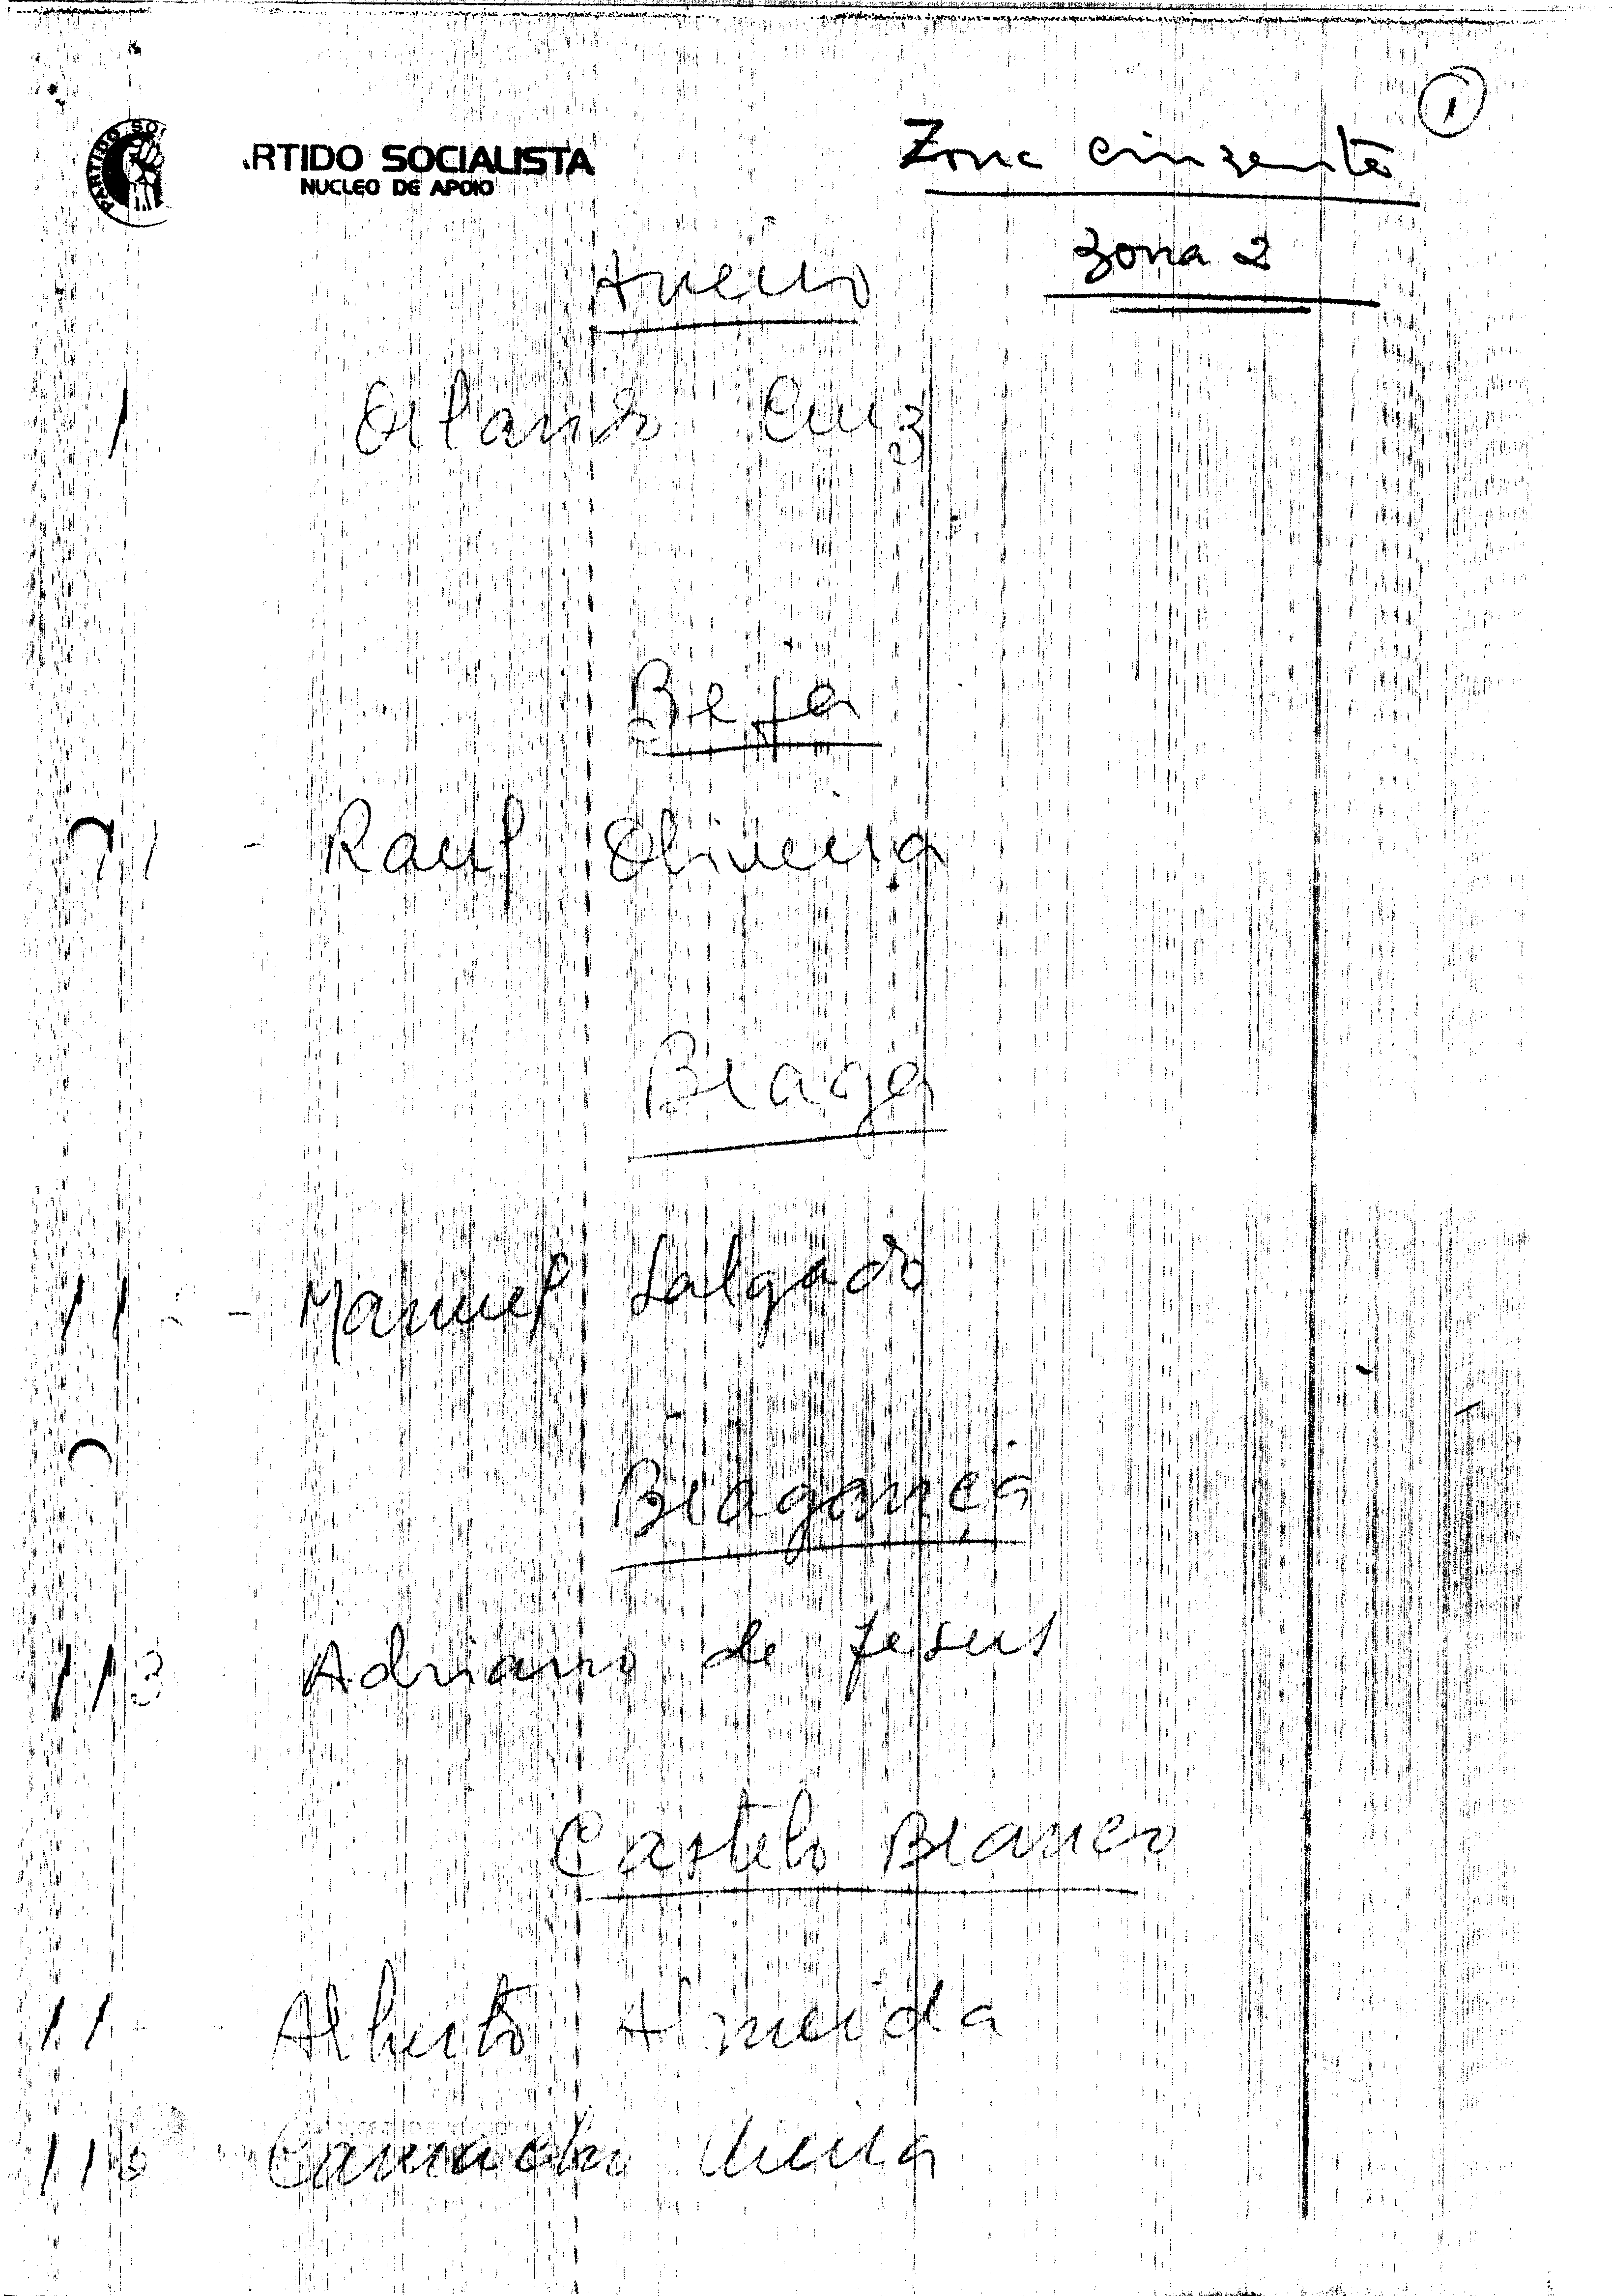 1
PARTIDO SOC
ARTIDO SOCIALISTA
NUCLEO DE APOIO
Zona cinzenta
Zona 2
Aveiro
1 Orlando Cruz
Beja
11 - Raul Oliveira
Braga
11 - Manuel Salgado
Bragança
113 Adriano de Jesus
Castelo Branco
11 - Alberto Almeida
Camacho Vieira